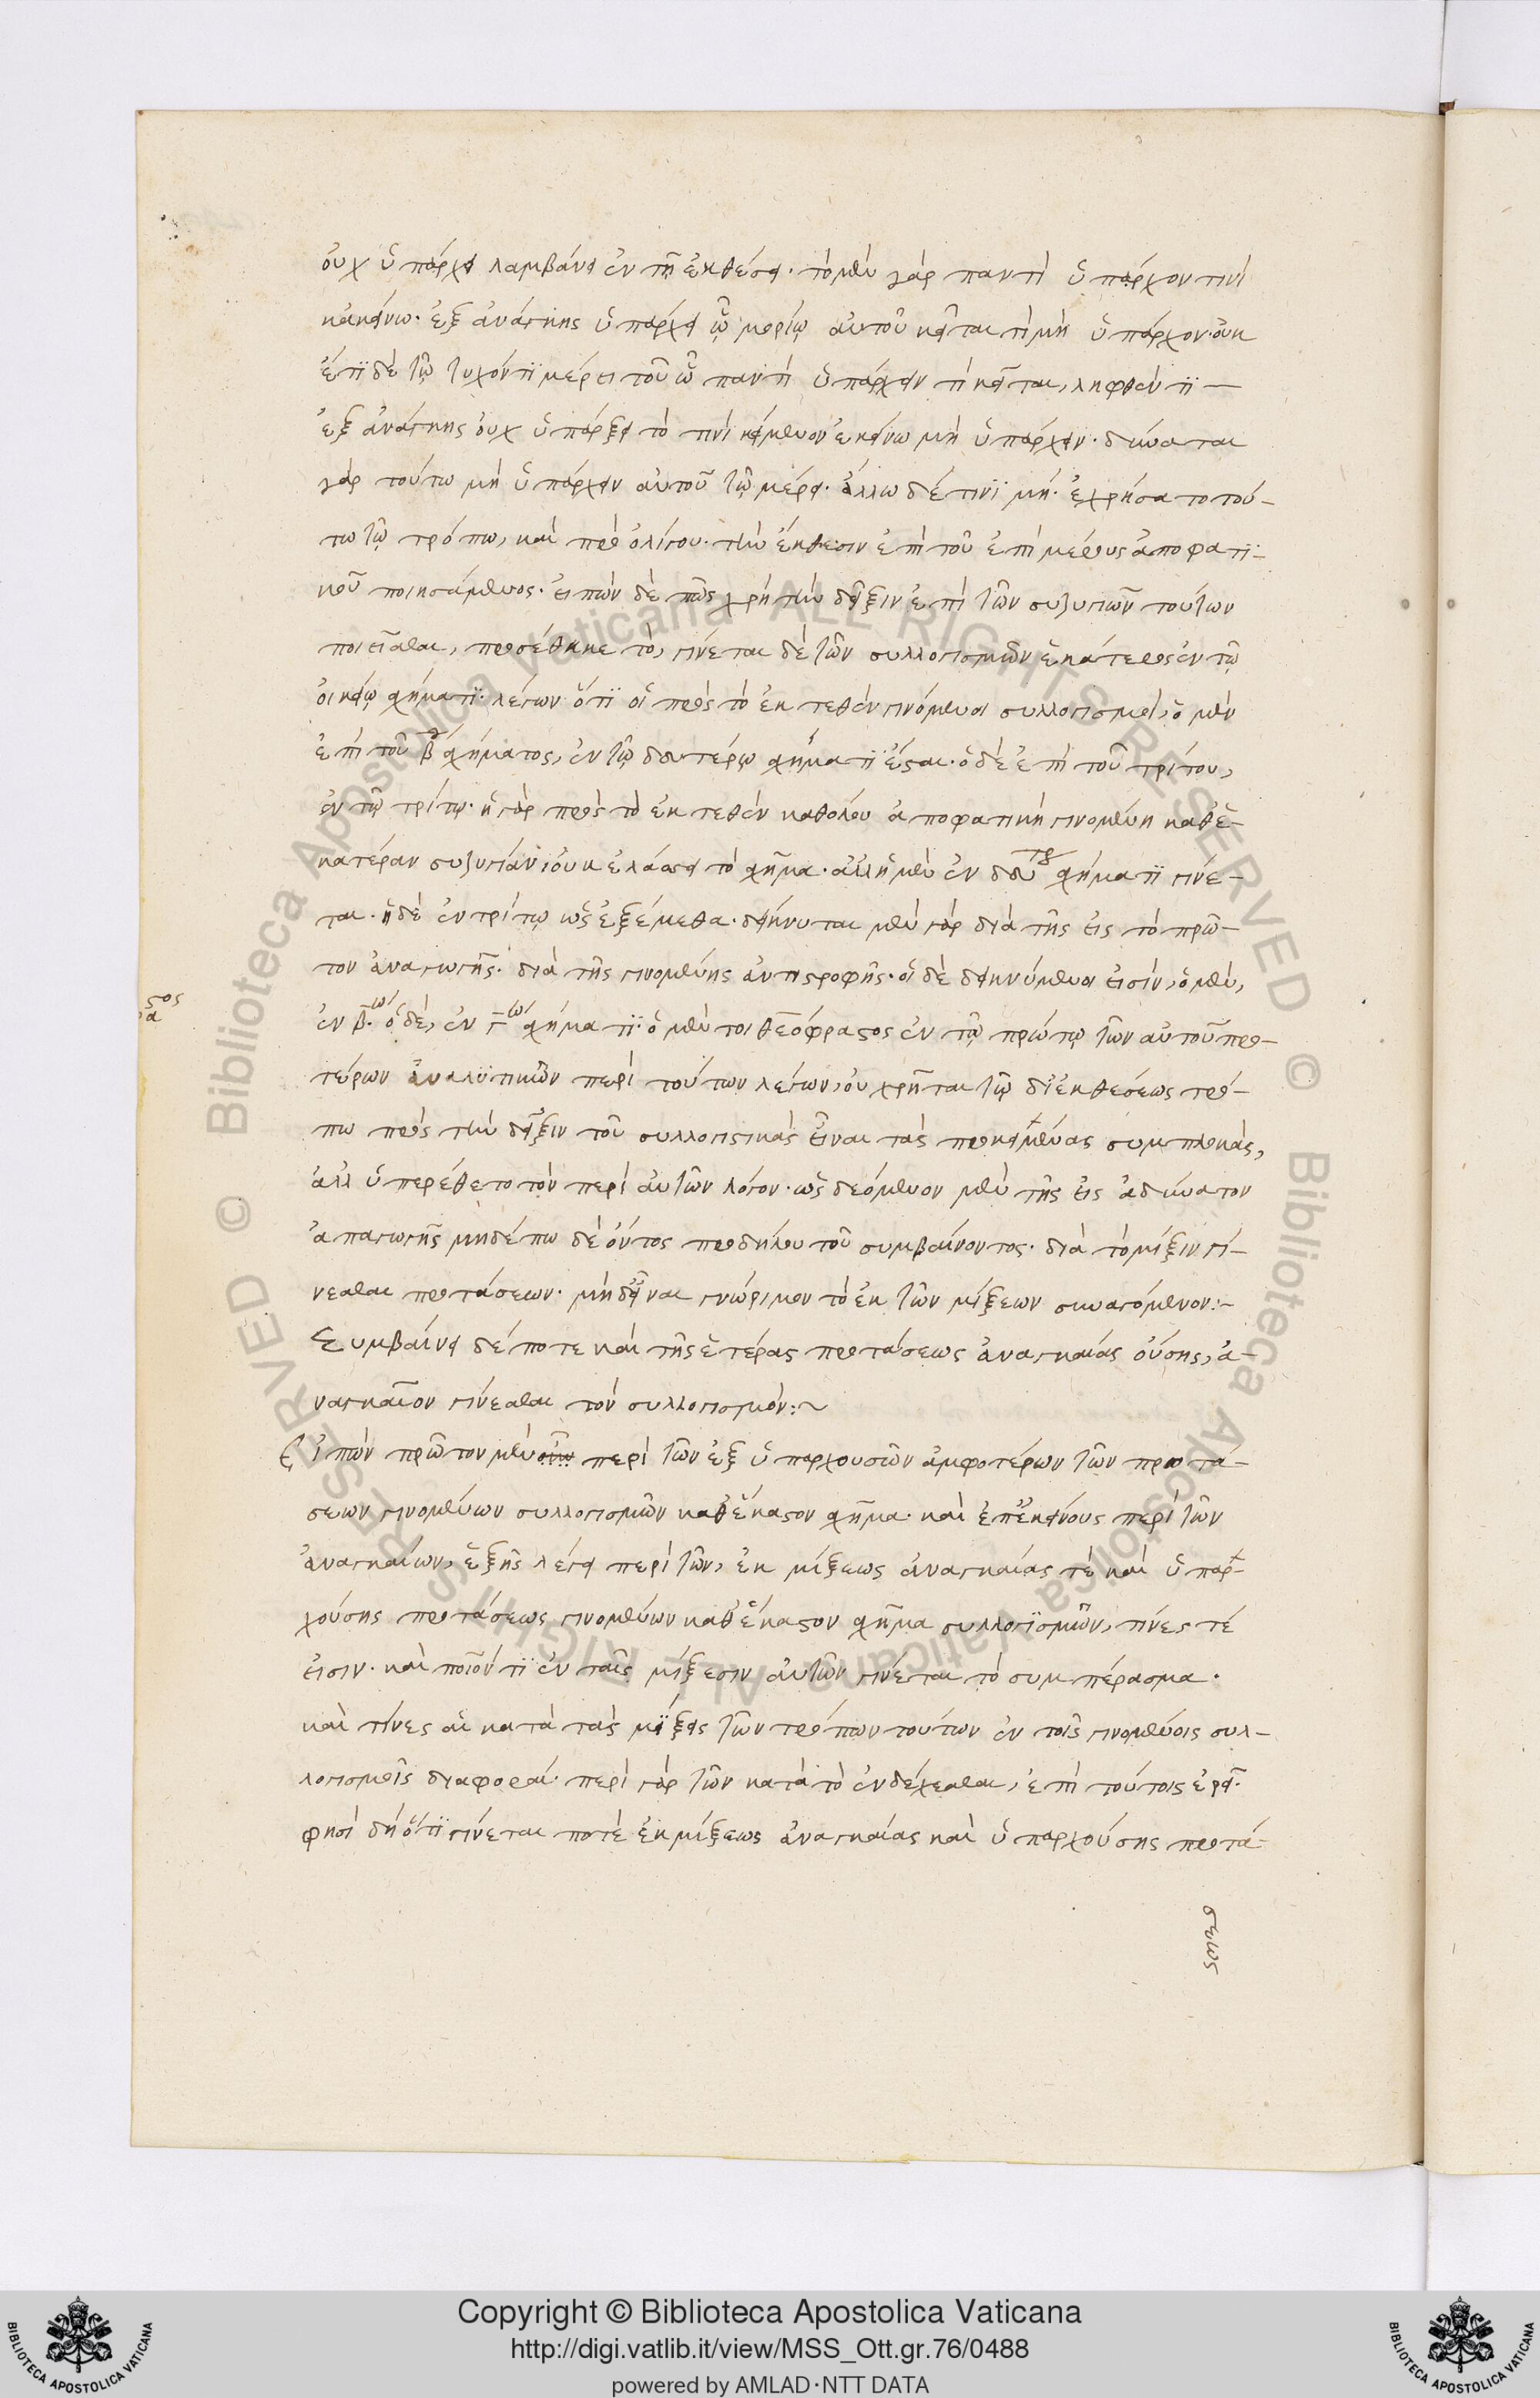 οὐχ ὑπάρχει λαμβάνει ἐν τῇ ἐκθέσει· τὸ μὲν γὰρ παντὶ ὑπάρχον τινὶ
κἀκείνω· ἐξ ἀνάγκης ὑπάρχει ᾧ μορίῳ αὐτοῦ κεῖται τὶ μὴ ὑπάρχον· οὐκ
ἔτϊ δὲ τῶ τυχόντϊ μέρει τοῦ ὧ παντὶ ὑπάρχειν τὶ κεῖται, ληφθέντϊ
ἐξ ἀνάγκης οὐχ ὑπάρξει τὸ τινὶ κείμενον ἐκείνω μὴ ὑπάρχειν· δύναται
γὰρ τούτω μὴ ὑπάρχειν αὐτοῦ τῶ μέρει· ἄλλω δέ τινϊ μή· ἐχρήσατο τού-
τω τῶ τρόπω, καὶ πρὸ ὀλίγου· τὴν ἔκθεσιν ἐπὶ τοῦ ἐπὶ μέρους ἀποφατϊ-
κοῦ ποιησάμενος· εἰπὼν δὲ πῶς χρὴ τὴν δεῖξιν ἐπὶ τῶν συζυγιῶν τούτων
ποιεῖσθαι, προσέθηκε τὸ, γίνεται δὲ τῶν συλλογισμῶν ἑκάτερος ἐν τῶ
οἰκείῳ σχήματϊ· λέγων ὅτϊ οἱ πρὸς τὸ ἐκτεθὲν γινόμενοι συλλογισμοὶ, ὁ μὲν
ἐπὶ τοῦ β σχήματος, ἐν τῶ δευτέρῳ σχήματϊ ἔσται· ὁ δὲ ἐπὶ τοῦ τρίτου,
ἐν τῶ τρίτῳ· ἡ γὰρ πρὸς τὸ ἐκτεθὲν καθόλου ἀποφατικὴ γινομένη καθ' ἑ-
κατέραν συζυγίαν, οὐκ ἐλάσσει τὸ σχῆμα· ἀλλ' ἡ μὲν ἐν δευτέρῳ σχήματϊ γίνε-
ται· ἡ δὲ ἐν τρίτῳ ὡς ἐξεθέμεθα· δείκνυται μὲν γὰρ διὰ τῆς εἰς τὸ πρῶ-
τον ἀναγωγῆς· διὰ τῆς γινομένης ἀντιστροφῆς· οἱ δὲ δεικνύμενοι εἰσὶν, ὁ μὲν,
ἐν β ͅῳ· ὁ δὲ, ἐν γῳ σχήματϊ· ὁ μέντοι θεόφραστος ἐν τῶ πρώτῳ τῶν αὐτοῦ προ-
τέρων ἀναλυτικῶν περὶ τούτων λέγων, οὐ χρῆται τῶ δι' ἐκθέσεως τρό-
πω πρὸς τὴν δεῖξιν τοῦ συλλογιστικὰς εἶναι τὰς προκειμένας συμπλοκὰς,
ἀλλ' ὑπερέθετο τὸν περὶ αὐτῶν λόγον· ὡς δεόμενον μὲν τῆς εἰς ἀδύνατον
ἀπαγωγῆς μηδέπω δὲ ὄντος προδήλου τοῦ συμβαίνοντος· διὰ τὸ μίξιν γί-
νεσθαι προτάσεων· μὴ δ' εἶναι γνώριμον τὸ ἐκ τῶν μίξεων συναγόμενον:-
Συμβαίνει δέ ποτε καὶ τῆς ἑτέρας προτάσεως ἀναγκαίας οὔσης, ἀ-
ναγκαῖον γίνεσθαι τὸν συλλογισμόν:~
Εἰπὼν πρῶτον μὲν περὶ τῶν ἐξ ὑπαρχουσῶν ἀμφοτέρων τῶν προτά-
σεων γινομένων συλλογισμῶν καθ' ἕκαστον σχῆμα· καὶ ἐπ' ἐκείνους περὶ τῶν
ἀναγκαίων, ἑξῆς λέγει περὶ τῶν, ἐκ μίξεως ἀναγκαίας τὲ καὶ ὑπαρ-
χούσης προτάσεως γινομένων καθ' ἕκαστον σχῆμα συλλογϊσμῶν, τίνες τέ
εἰσιν· καὶ ποῖόν τϊ ἐν ταῖς μίξεσιν αὐτῶν γίνεται τὸ συμπέρασμα·
καὶ τίνες αἱ κατὰ τὰς μίξεις τῶν τρόπων τούτων ἐν τοῖς γινομένοις συλ-
λογισμοῖς διαφοραί· περὶ γὰρ τῶν κατὰ τὸ ἐνδέχεσθαι, ἐπὶ τούτοις ἐρεῖ·
φησὶ δὴ ὅτϊ γίνεται ποτὲ ἐκ μίξεως ἀναγκαίας καὶ ὑπαρχούσης προτά-
σεως
Copyright © Biblioteca Apostolica Vaticana
http://digi.vatlib.it/view/MSS_Ott.gr.76/0488
powered by AMLAD·NTT DATA